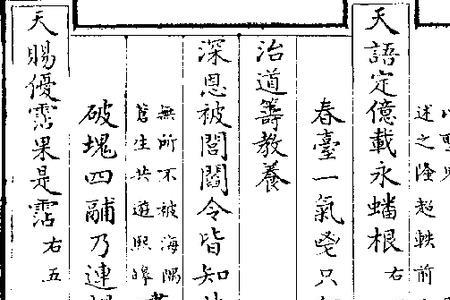 述之隆超軼前
天語定億載永蟠根右
春臺一氣發只
治道籌教養
深恩被閭閻令皆知
無所不被海隅
蒼生共遊熙皞
破塊四鬴乃連
天賜優霑果是霑右五